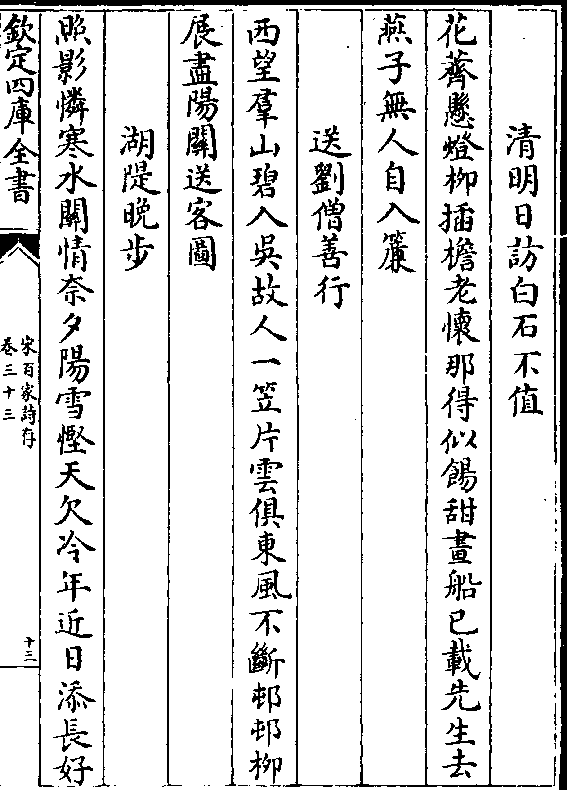 清明日訪白石不值
花薺懸燈柳插檐老懷那得似餳甜畫船已載先生去
燕子無人自入簾
送劉僧善行
西望羣山碧入吳故人一笠片雲俱東風不斷邨邨柳
展盡陽關送客圖
湖隄晚步
照影憐寒水關情奈夕陽雪慳天欠冷年近日添長好
欽定四庫全書
宋百家詩存
卷三十三
十三